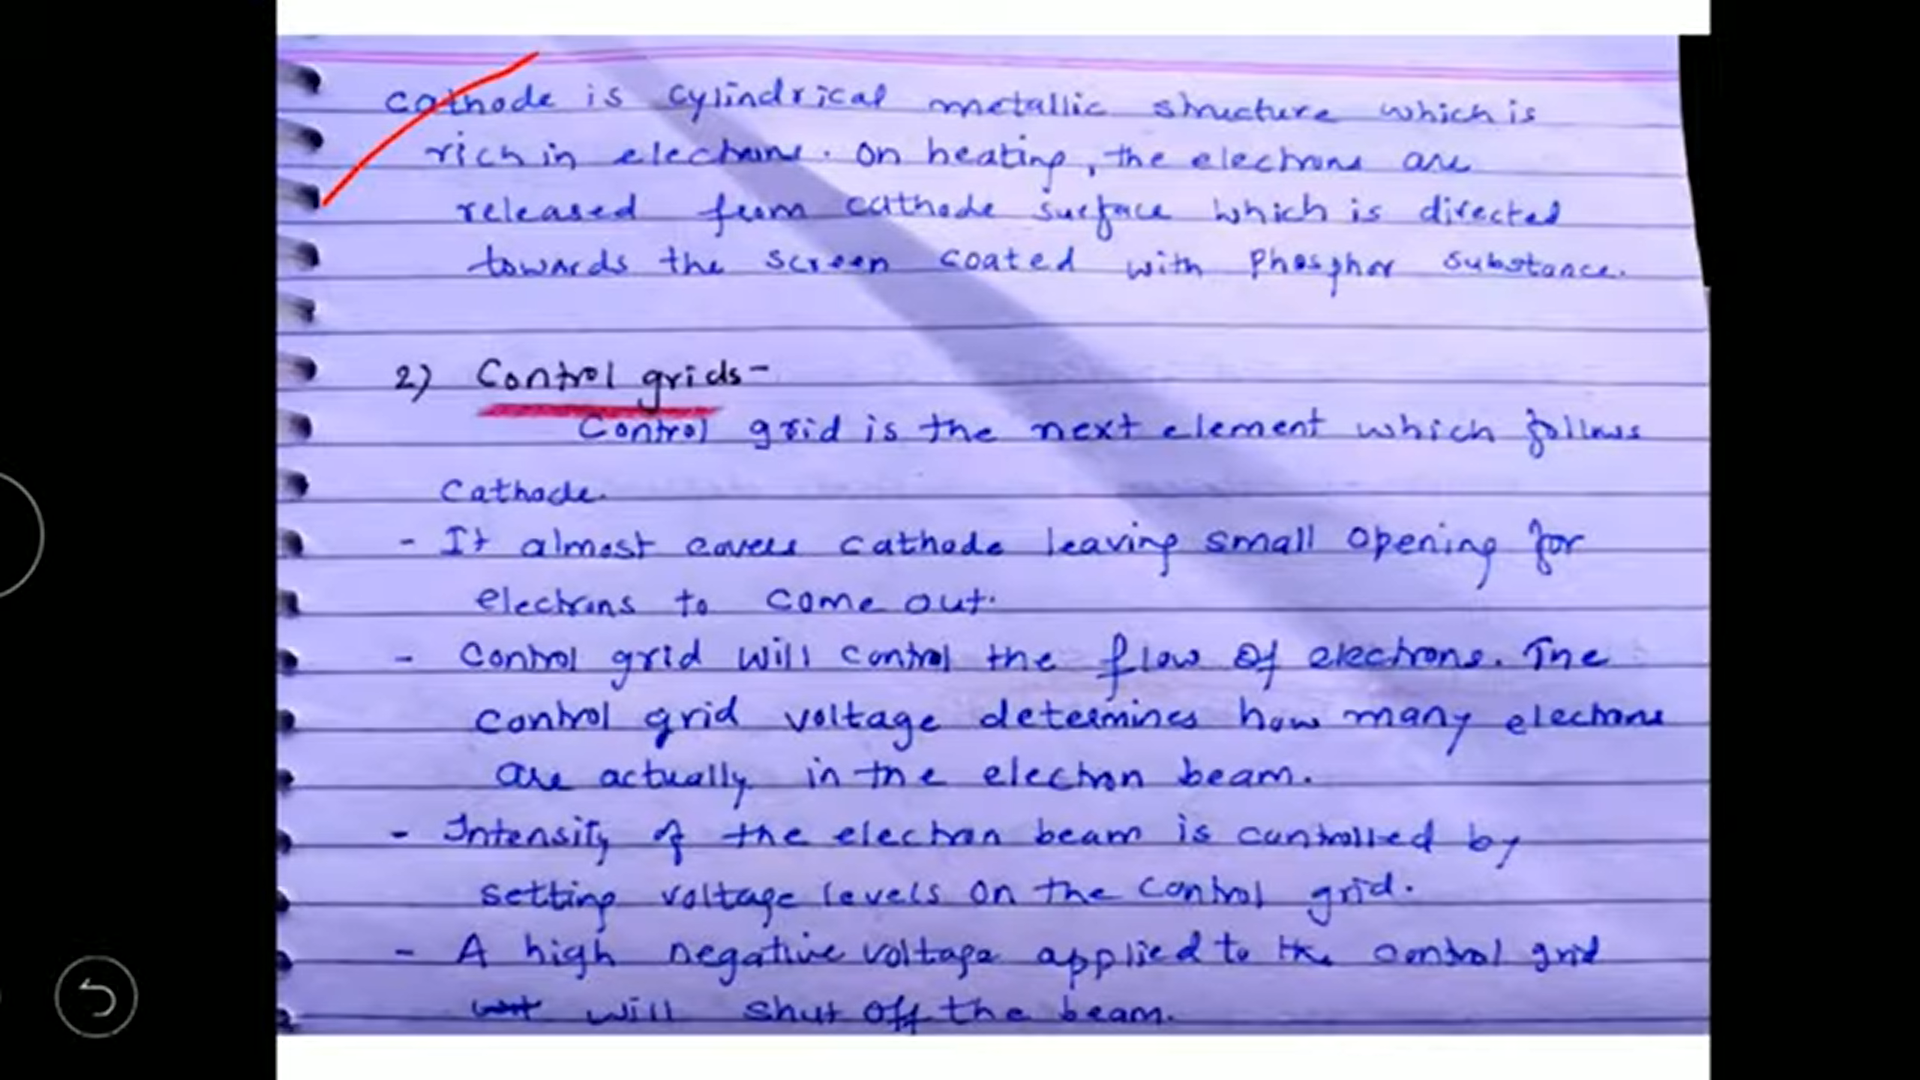 Cathode is cylindrical metallic structure which is
rich in electrons. On heating, the electrons are
released from cathode surface which is directed
towards the screen coated with Phosphor substance.
2) Control grids-
Control grid is the next element which follows
Cathode.
- It almost covers cathode leaving small opening for
electrons to come out.
- Control grid will control the flow of electrons. The
control grid voltage determines how many electrons
are actually in the electron beam.
- Intensity of the electron beam is controlled by
setting voltage levels on the control grid.
- A high negative voltage applied to the control grid
will shut off the beam.